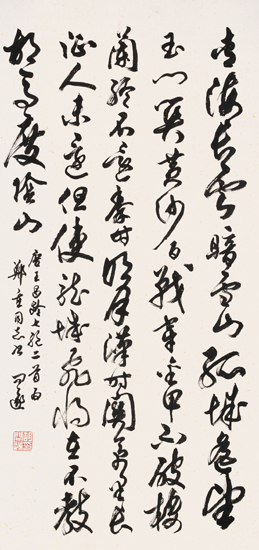 青海長雲暗雪山孤城遙望
玉門關黃沙百戰穿金甲不破樓
蘭終不還秦時明月漢時關萬里長
征人未還但使龍城飛將在不教
胡馬度陰山
唐王昌齡七絕二首為
鄭重同志 田遨